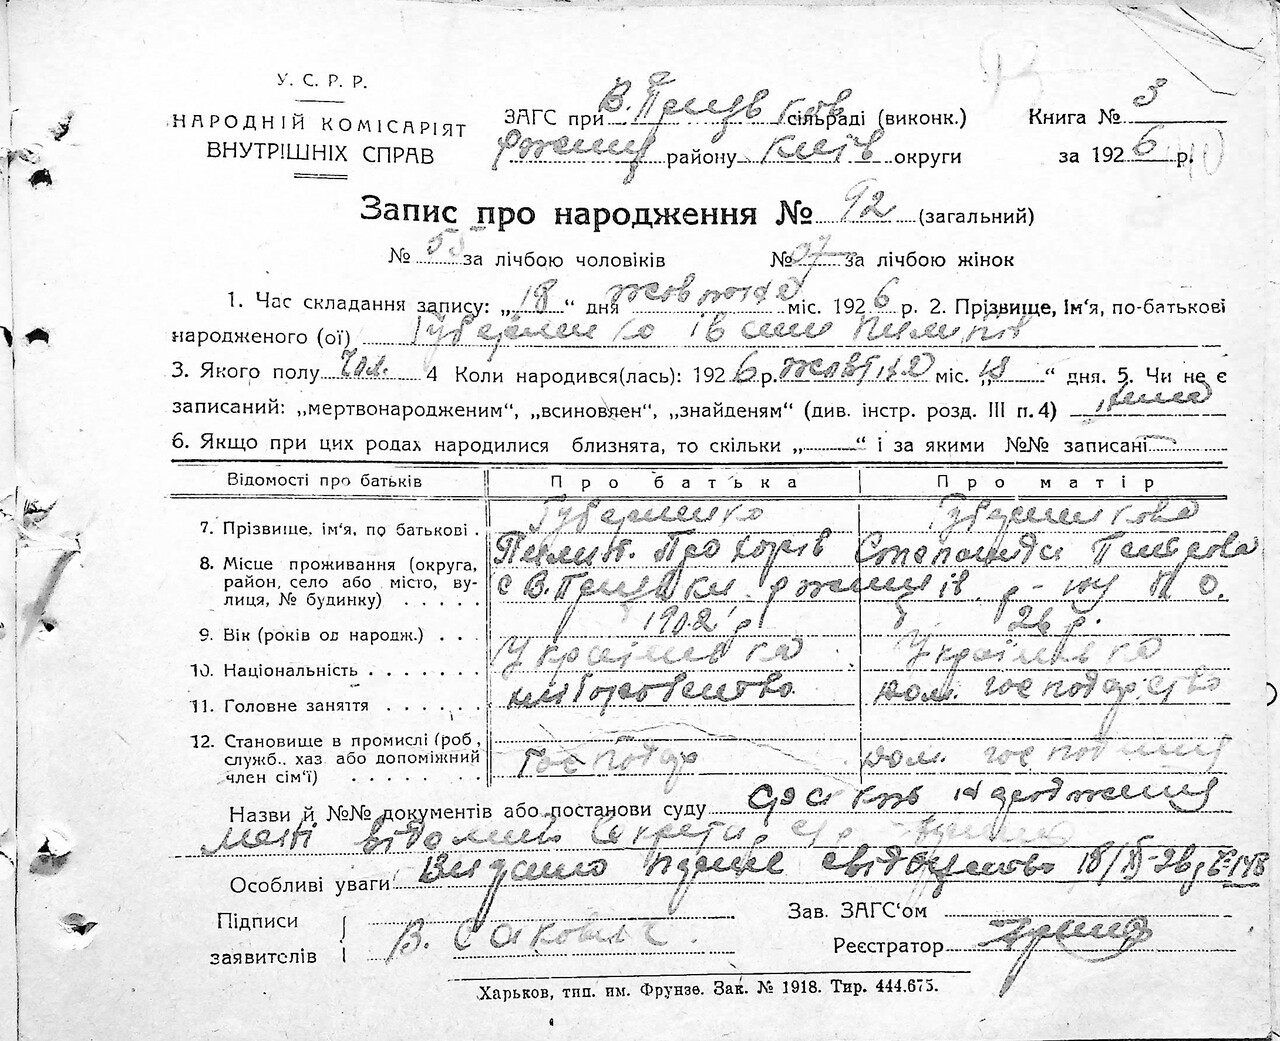 У. С. Р. Р.
НАРОДНІЙ КОМІСАРІЯТ
ВНУТРІШНІХ СПРАВ
ЗАГС при В. Прицьків сільраді (виконк.)
району Київ округи
Книга № 3
за 1926 р.
Запис про народження № 92 (загальний)
№ 55 за лічбою чоловіків № 37 за лічбою жінок
1. Час складання запису: „18“ дня жовтня міс. 1926 р. 2. Прізвище, Ім‘я, по-батькові
народженого (ої) Губерненко Іван Пилипів
3. Якого полу чол. 4 Коли народився(лась): 1926 р. жовтня міс. „18“ дня. 5. Чи не є
записаний: „мертвонародженим“, „всиновлен“, „знайденям“ (див. інстр. розд. III п. 4)
6. Якщо при цих родах народилися близнята, то скільки „ “ і за якими №№ записані
Відомості про батьків Про батька Про матір
7. Прізвище, ім‘я, по батькові . Губерненко
Пилип. Прохорів
8. Місце проживання (округа, район, село або місто, вулиця, № будинку) . . . . . с В. Прицьки
9. Вік (років од народж.) . . . 1902 р 26 р.
10. Національність . . . . . . . Українька Українька
11. Головне заняття . . . . . . хліборобство дом. господарство
12. Становище в промислі (роб, служб.. хаз або допоміжний член сім‘ї) . . . . . Господар дом. господиня
Назви й №№ документів або постанови суду
мені відомий
Особливі уваги: Видано свідоцтво 18/X-26 р
Підписи
заявителів
В.
Зав. ЗАГС‘ом
Реєстратор
Харьков, тип. им. Фрунзе. Зак. № 1918. Тир. 444.675.